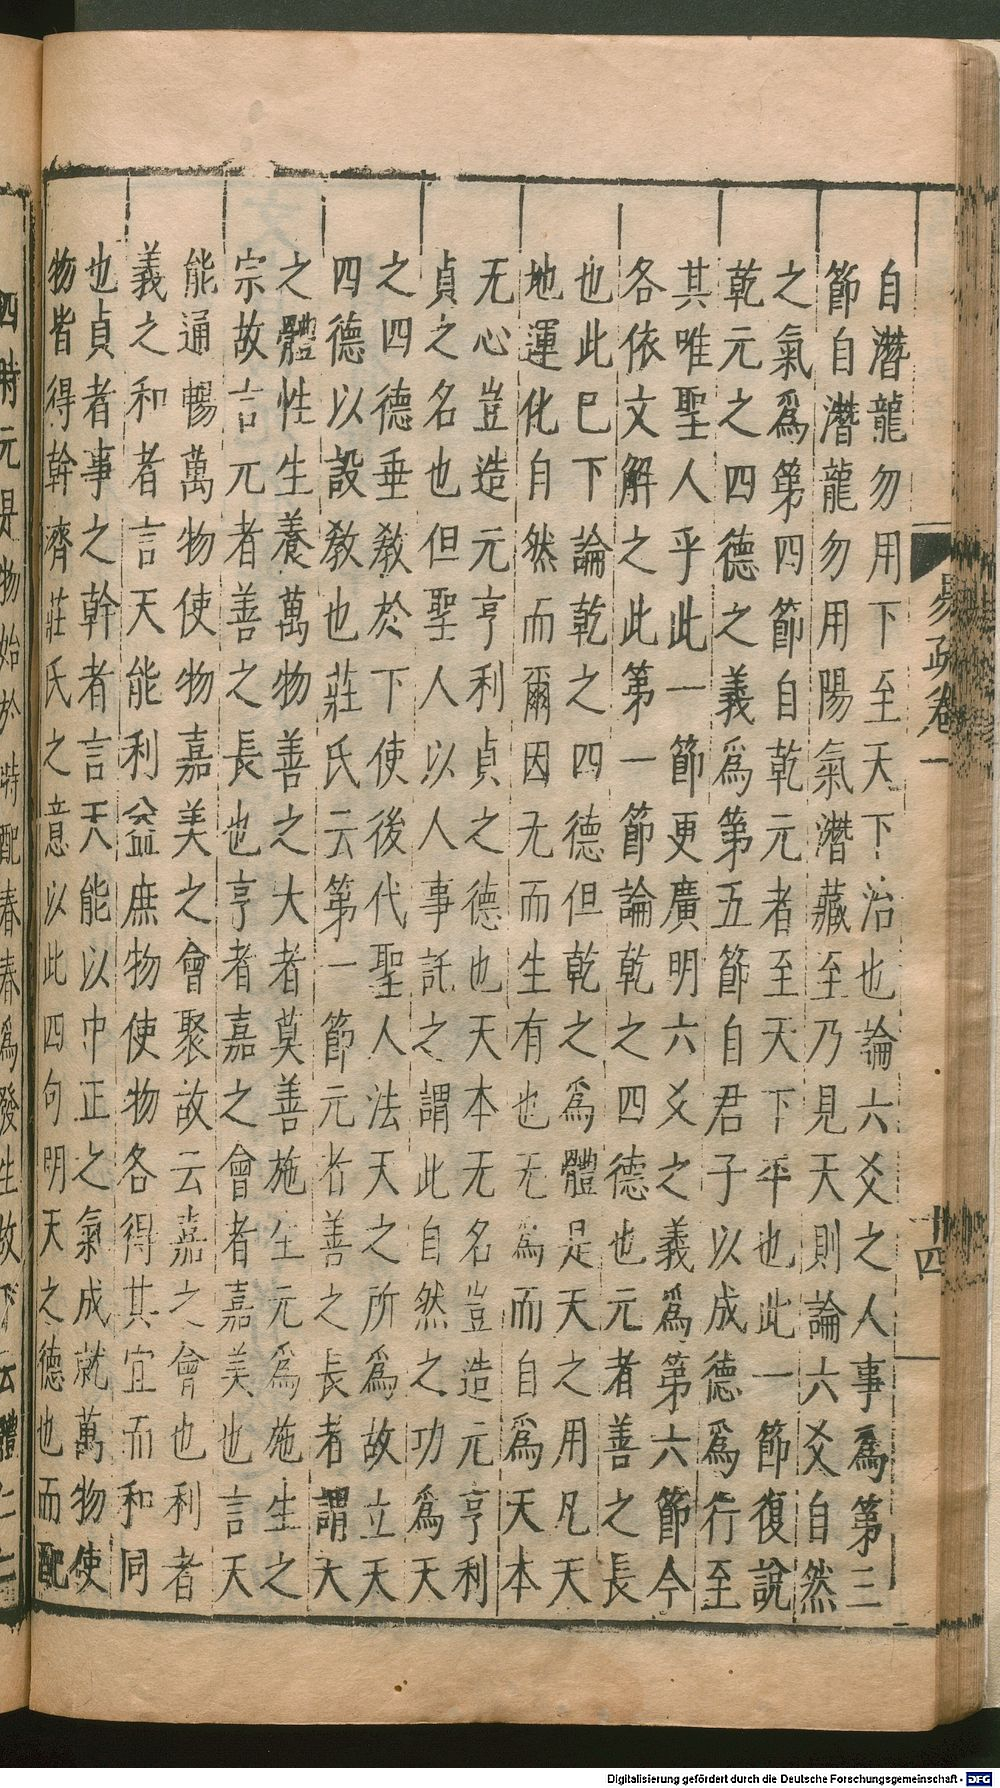 自潛龍勿用下至天下治也論六爻之人事爲第三
節自潛龍勿用陽氣潛藏至乃見天則論六爻自然
之氣爲第四節自乾元者至天下平也此一節復說
乾元之四德之義爲第五節自君子以成德爲行至
其唯聖人乎此一節更廣明六爻之義爲第六節今
各依文解之此第一節論乾之四德也元者善之長
也此已下論乾之四德但乾之爲體是天之用凡天
地運化自然而爾因无而生有也无爲而自爲天本
无心豈造元亨利貞之德也天本无名豈造元亨利
貞之名也但聖人以人事託之謂此自然之功爲天
之四德垂教於下使後代聖人法天之所爲故立天
四德以設教也莊氏云第一節元者善之長者謂天
之體性生養萬物善之大者莫善施生元爲施生之
宗故言元者善之長也亨者嘉之會者嘉美也言天
能通暢萬物使物嘉美之會聚故云嘉之會也利者
義之和者言天能利益庶物使物各得其宜而和同
也貞者事之幹者言天能以中正之氣成就萬物使
物皆得幹濟莊氏之意以此四句明天之德也而配
易疏卷一
十四
四時元是物始於時配春春爲發生故下云體仁仁
Digitalisierung gefördert durch die Deutsche Forschungsgemeinschaft - DFG